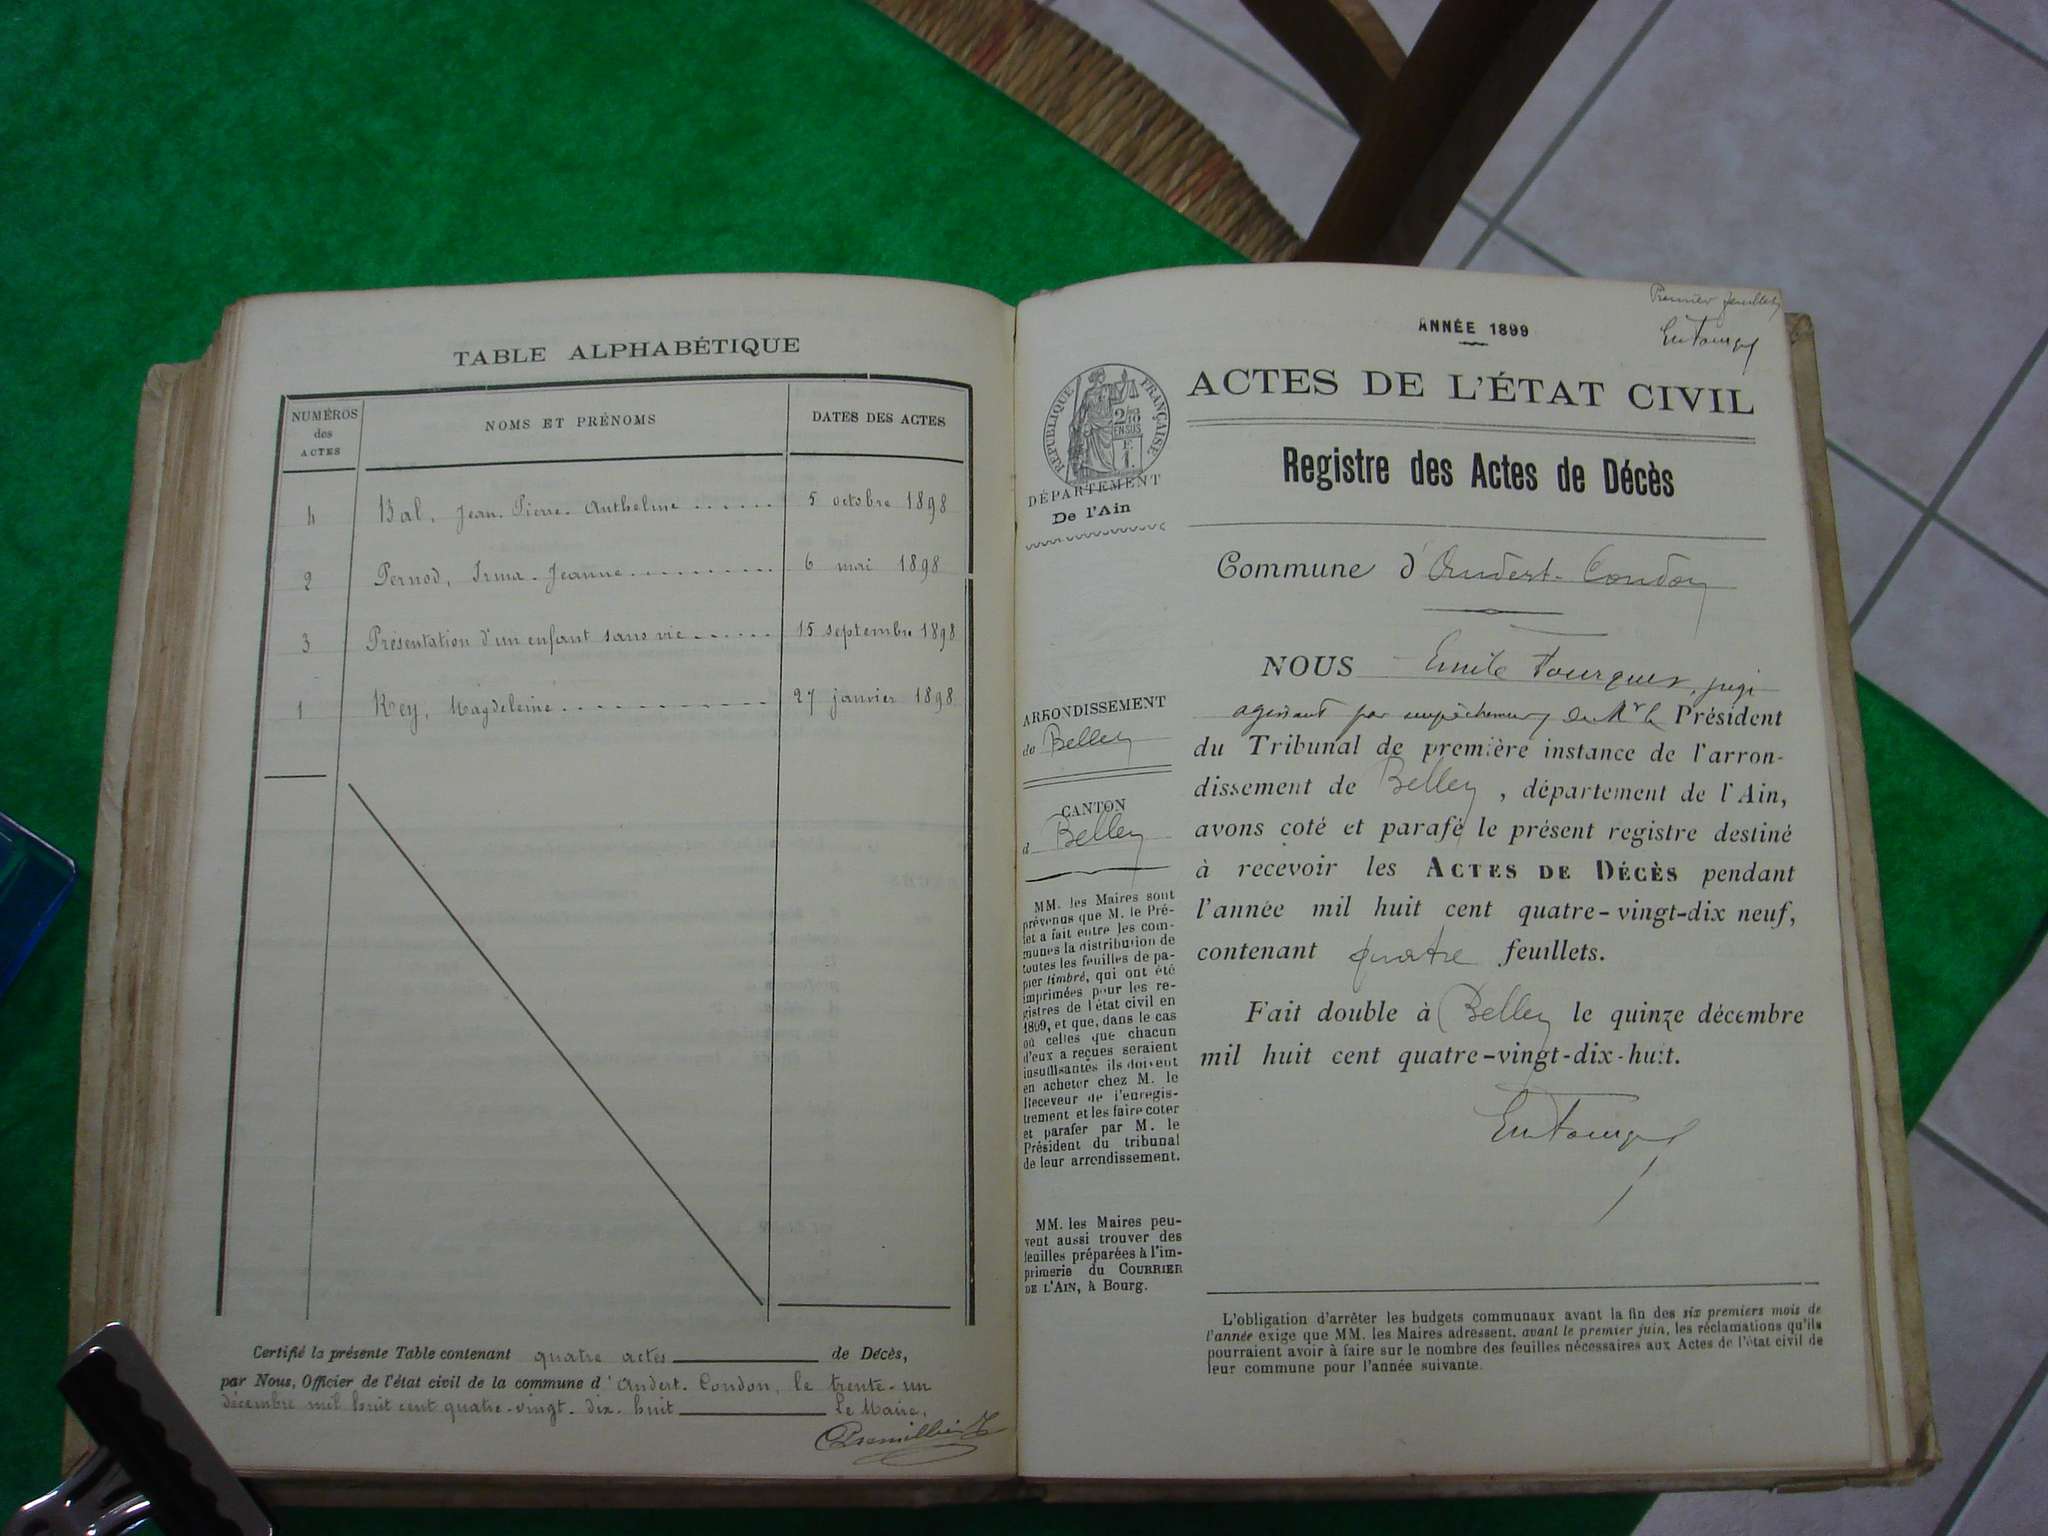 TABLE ALPHABÉTIQUE
NUMÉROS des ACTES
NOMS ET PRÉNOMS
DATES DES ACTES
4 Bal, Jean. Pierre. Anthelme 5 octobre 1898
2 Pernod, Irma. Jeanne 6 mai 1898
3 Présentation d'un enfant sans vie 15 septembre 1898
1 Rey, Magdeleine 27 janvier 1898
Certifié la présente Table contenant quatre actes de Décès,
par Nous, Officier de l'état civil de la commune d'Andert. Condon, le trente-un
décembre mil huit cent quatre-vingt. dix. huit Le Maire,
Premier feuillet
ANNÉE 1899
ACTES DE L'ÉTAT CIVIL
RÉPUBLIQUE FRANÇAISE
2/10
EN SUS
1 F.
DÉPARTEMENT
De l'Ain
Registre des Actes de Décès
Commune d'Andert-Condon
NOUS Emile Fourquet, juge
agissant par empêchement de Mr le Président
du Tribunal de première instance de l'arron-
dissement de Belley, département de l'Ain,
avons coté et parafé le présent registre destiné
à recevoir les ACTES DE DÉCÈS pendant
l'année mil huit cent quatre-vingt-dix neuf,
contenant quatre feuillets.
Fait double à Belley le quinze décembre
mil huit cent quatre-vingt-dix-huit.
ARRONDISSEMENT
de Belley
CANTON
d Belley
MM. les Maires sont
prévenus que M. le Pré-
fet a fait entre les com-
munes la distribution de
toutes les feuilles de pa-
pier timbré, qui ont été
imprimées pour les re-
gistres de l'état civil en
1899, et que, dans le cas
où celles que chacun
d'eux a reçues seraient
insuffisantes ils doivent
en acheter chez M. le
Receveur de l'enregis-
trement et les faire coter
et parafer par M. le
Président du tribunal
de leur arrondissement.
MM. les Maires peu-
vent aussi trouver des
feuilles préparées à l'im-
primerie du COURRIER
DE L'AIN, à Bourg.
L'obligation d'arrêter les budgets communaux avant la fin des six premiers mois de
l'année exige que MM. les Maires adressent, avant le premier juin, les réclamations qu'ils
pourraient avoir à faire sur le nombre des feuilles nécessaires aux Actes de l'état civil de
leur commune pour l'année suivante.